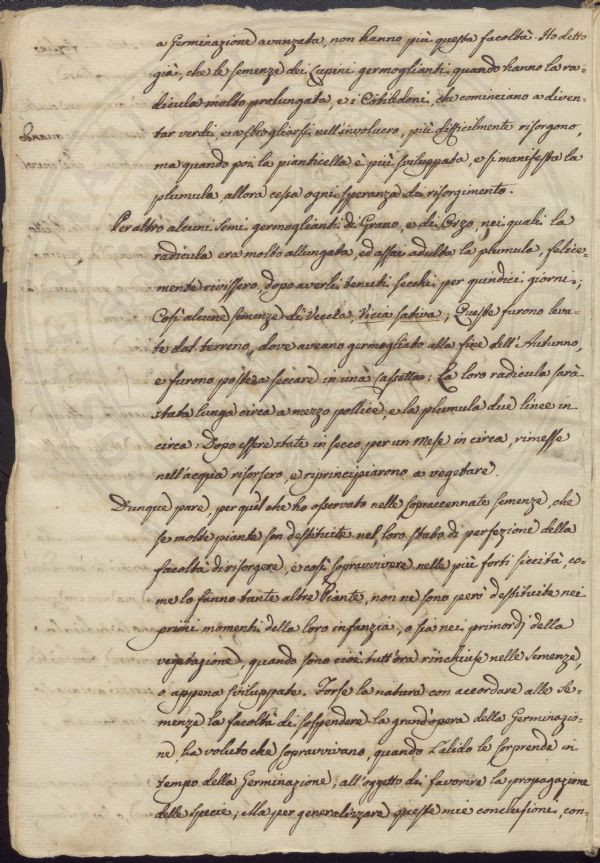 a Germinazione avanzata, non hanno più questa facoltà. Ho detto
già, che le semenze dei Lupini germoglianti quando hanno la ra=
dicula molto prolungata, e i Cotiledoni, che cominciano a diven=
tar verdi, e a sciogliersi nell'involucro, più difficilmente risorgono,
ma quando poi la pianticella è più sviluppata, e si manifesta la
plumula, allora cessa ogni speranza di risorgimento.
Per altro alcuni Semi germoglianti di Grano, e di Orzo, nei quali la
radicula era molto allungata, ed assai adulta la plumula, felice=
mente rivissero dopo averli tenuti secchi per quindici giorni;
Così alcune semenze di Veccia, Vicia sativa; Queste furono leva=
te dal terreno, dove aveano germogliato alla fine dell'Autunno,
e furono poste a seccare in una Cassetta: La loro radicula sarà
stata lunga circa a mezzo pollice, e la plumula due linee in
circa. Dopo essere state in secco per un Mese in circa, rimesse
nell'acqua risorsero, e riprincipiarono a vegetare.
Dunque pare, per quel che ho osservato nelle sopraccennate semenze, che
se molte piante son destituite nel loro stato di perfezione della
facoltà di risorgere, e così sopravvivere nelle più forti siccità, co=
me lo fanno tante altre Piante, non ne sono però destituite nei
primi momenti della loro infanzia, o sia nei primordj della
vegetazione, quando sono cioè tutt'ora rinchiuse nelle semenze,
o appena sviluppate. Forse la natura con accordare alle Se=
menze la facoltà di sospendere la grand'opera della Germinazio=
ne, ha voluto che sopravvivano, quando l'alido le sorprende in
tempo della Germinazione, all'oggetto di favorire la propagazione
delle specie; Ma per generalizzare queste mie conclusioni, con=